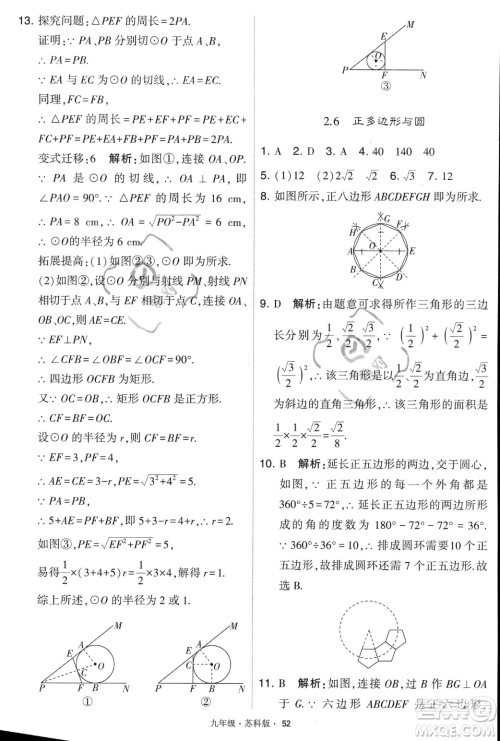 13. 探究问题:△PEF 的周长=2PA.
证明:∵ PA、PB 分别切⊙O 于点 A、B,
∴ PA=PB.
∵ EA 与 EC 为⊙O 的切线,∴ EA=EC.
同理,FC=FB,
∴ △PEF 的周长=PE+EF+PF=PE+EC+
FC+PF=PE+EA+FB+PF=PA+PB=2PA.
变式迁移:6 解析:如图①,连接 OA、OP.
∵ PA 是⊙O 的切线,∴ OA⊥PA,即
∠PAO=90°.∵ △PEF 的周长为 16 cm,∴
PA=8 cm,∴ OA=√(PO²-PA²)=
6(cm),∴ ⊙O 的半径为 6 cm.
拓展提高:(1) 如图②③,⊙O 即为所求.
(2) 如图②,设⊙O 分别与射线 PM、PN
相切于点 A、B,与 EF 相切于点 C,连接 OA、
OB、OC,则 OC⊥EF.
∵ EF⊥PN,
∴ 四边形 OCFB 为矩形.
又∵ OC=OB,∴ 矩形 OCFB 为正方形,
∴ CF=BF=OC.
设⊙O 的半径为 r,则 CF=BF=r.
∵ EF=3,PF=4,
∴ AE=CE=3-r,PE=√(3²+4²)=5.
∵ PA=PB,
∴ 5+AE=4+BF,即 5+3-r=4+r,∴ r=2.
如图③,PE=√(EF²+PF²)=5,
易得 1/2×(3+4+5)r=1/2×3×4,∴ r=1.
综上所述,⊙O 的半径为 2 或 1.
M
A
E
O
C
P
F
B
N
①
M
A
E
C
O
P
F
B
N
②
M
E
P
F
N
③
2.6 正多边形与圆
1. A 2. 40 140 40
5. (1)12 (2)2√2 6. D 7. 12
8. 如图所示,正八边形 ABCDEFGH 即为所求.
9. D 解析:由题意可求得所作三角形的三边
长分别为 1/2、√2/2、√3/2.∵ (1/2)²+(√2/2)²=
(√3/2)²,∴ 该三角形是以 1/2、√2/2 为直角边,√3/2
为斜边的直角三角形,∴ 该三角形的面积是
1/2×1/2×√2/2=√2/8.
10. B 解析:延长正五边形的两边,交于圆心,
如图.∵ 正五边形的每一个外角都是
360°÷5=72°,∴ 延长正五边形的两边所成的
角的度数为 180°-72°-72°=36°.∵
360°÷36°=10,∴ 排成圆环需要 10 个正五边
形.∵ 图中已有 3 个正五边形,10-3=7,∴
排成圆环还需 7 个这样的正五边形.故
选 B.
11. B 解析:∵ 一个正六边形与一个正方形
的边 GF、DC 都在直线 l 上,∴ 正六边形
九年级·苏科版 52